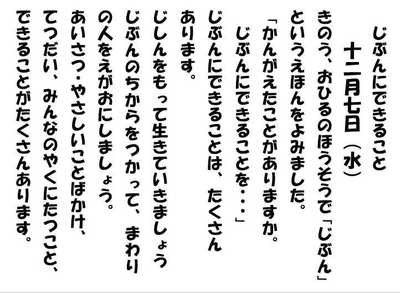 じぶんにできること
十二月七日（水）
きのう、おひるのほうそうで「じぶん」
というえほんをよみました。
「かんがえたことがありますか。
じぶんにできることを・・・」
じぶんにできることは、たくさん
あります。
じしんをもって生きていきましょう
じぶんのちからをつかって、まわり
の人をえがおにしましょう。
あいさつ・やさしいことばかけ、
てつだい、みんなのやくにたつこと、
できることがたくさんあります。